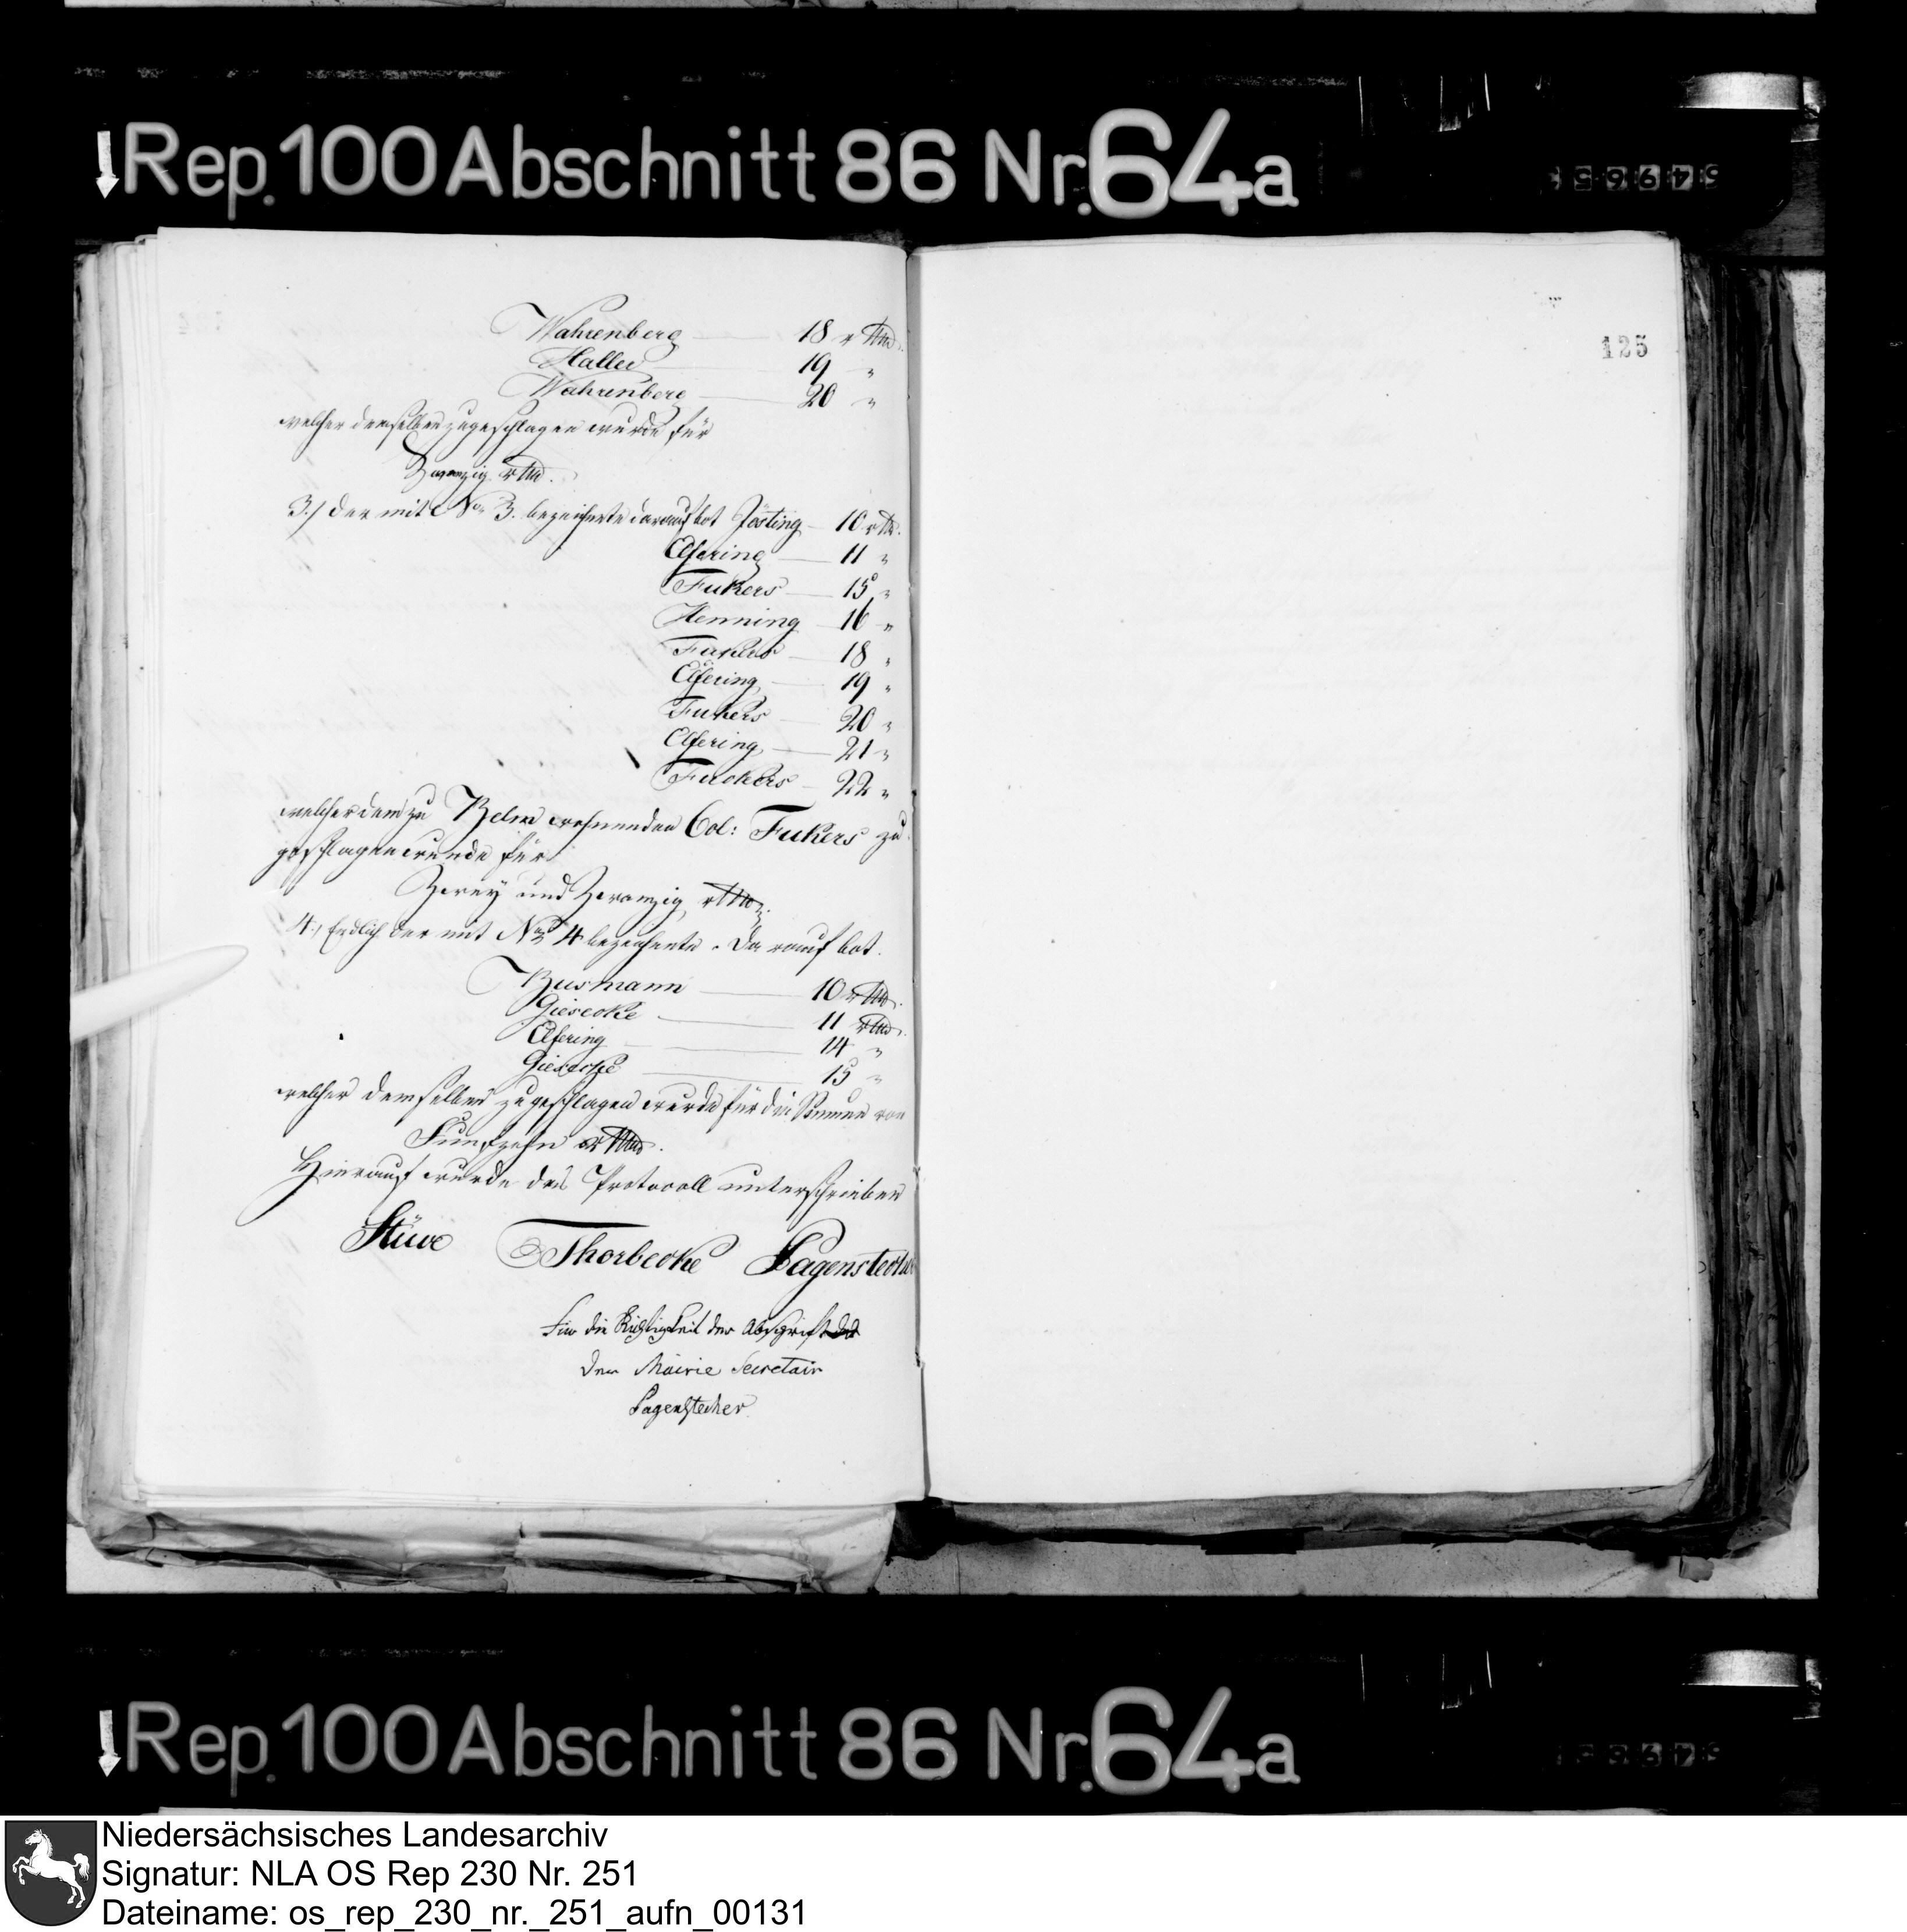 Rep. 100 Abschnitt 86 Nr. 64a
Wahrenberg 18 rthl
Haller 19 "
Wahrenberg 20 "
welcher demselben zugeschlagen wurde für
Zwanzig rthl.
3./ der mit No 3. bezeichnete darauf bot Josting 10 rthl.
Elfering 11 "
Fukers 15 "
Henning 16 "
Fukers 18 "
Elfering 19 "
Fukers 20 "
Elfering 21 "
Fuckers 22 "
welcher dem zu Belm wohnenden Col: Fukers zu
geschlagen wurde für
Zwey und Zwanzig rthl.
4./ Endlich der mit No 4 bezeichnete. Darauf bot.
Busmann 10 rthl.
Giesecke 11 rthl.
Elfering 14 "
Giesecke 15 "
welcher demselben zugeschlagen wurde für die Summe von
Funfzehn rthl.
Hierauf wurde das Protocoll unterschrieben
Stüve Thorbecke Pagenstecher
Für die Richtigkeit der Abschrift
Der Mairie Secretair
Pagenstecher
125
Rep. 100 Abschnitt 86 Nr. 64a
Niedersächsisches Landesarchiv
Signatur: NLA OS Rep 230 Nr. 251
Dateiname: os_rep_230_nr._251_aufn_00131